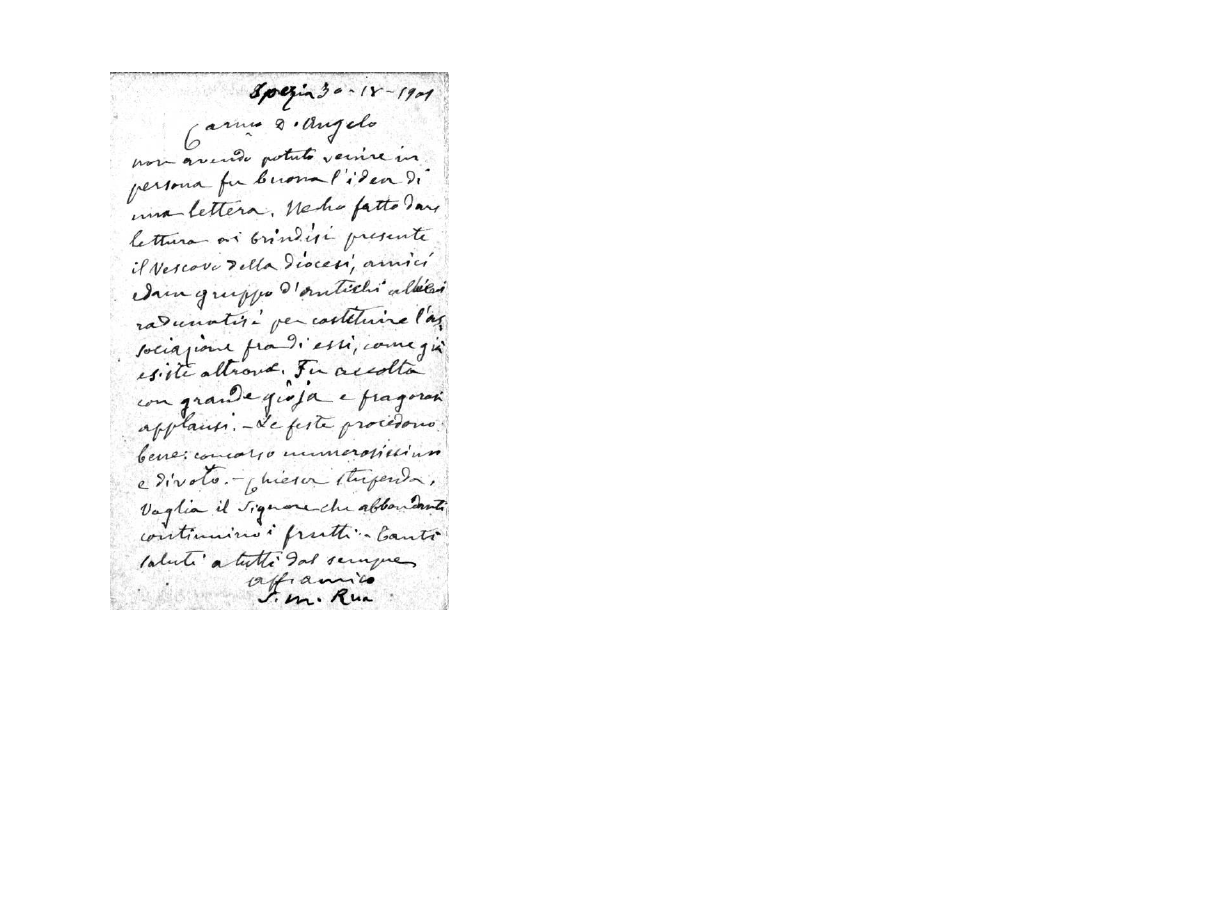 Spezia 30-IV-1901
Carmo D. Angelo
non avendo potuto venire in
persona fu buona l'idea di
una lettera. Ne ho fatto dare
lettura ai brindisi presente
il Vescovo della diocesi, amici
ed un gruppo d'antichi allievi
radunatisi per costituire l'as
sociazione fra di essi, come già
esiste altrove. Fu accolta
con grande gioja e fragorosi
applausi. - Le feste procedono
bene: concorso numerosissimo
e divoto. - Chiesa stupenda.
Voglia il Signore che abbondanti
continuino i frutti - Tanti
saluti a tutti dal sempre
aff. amico
S. M. Rua